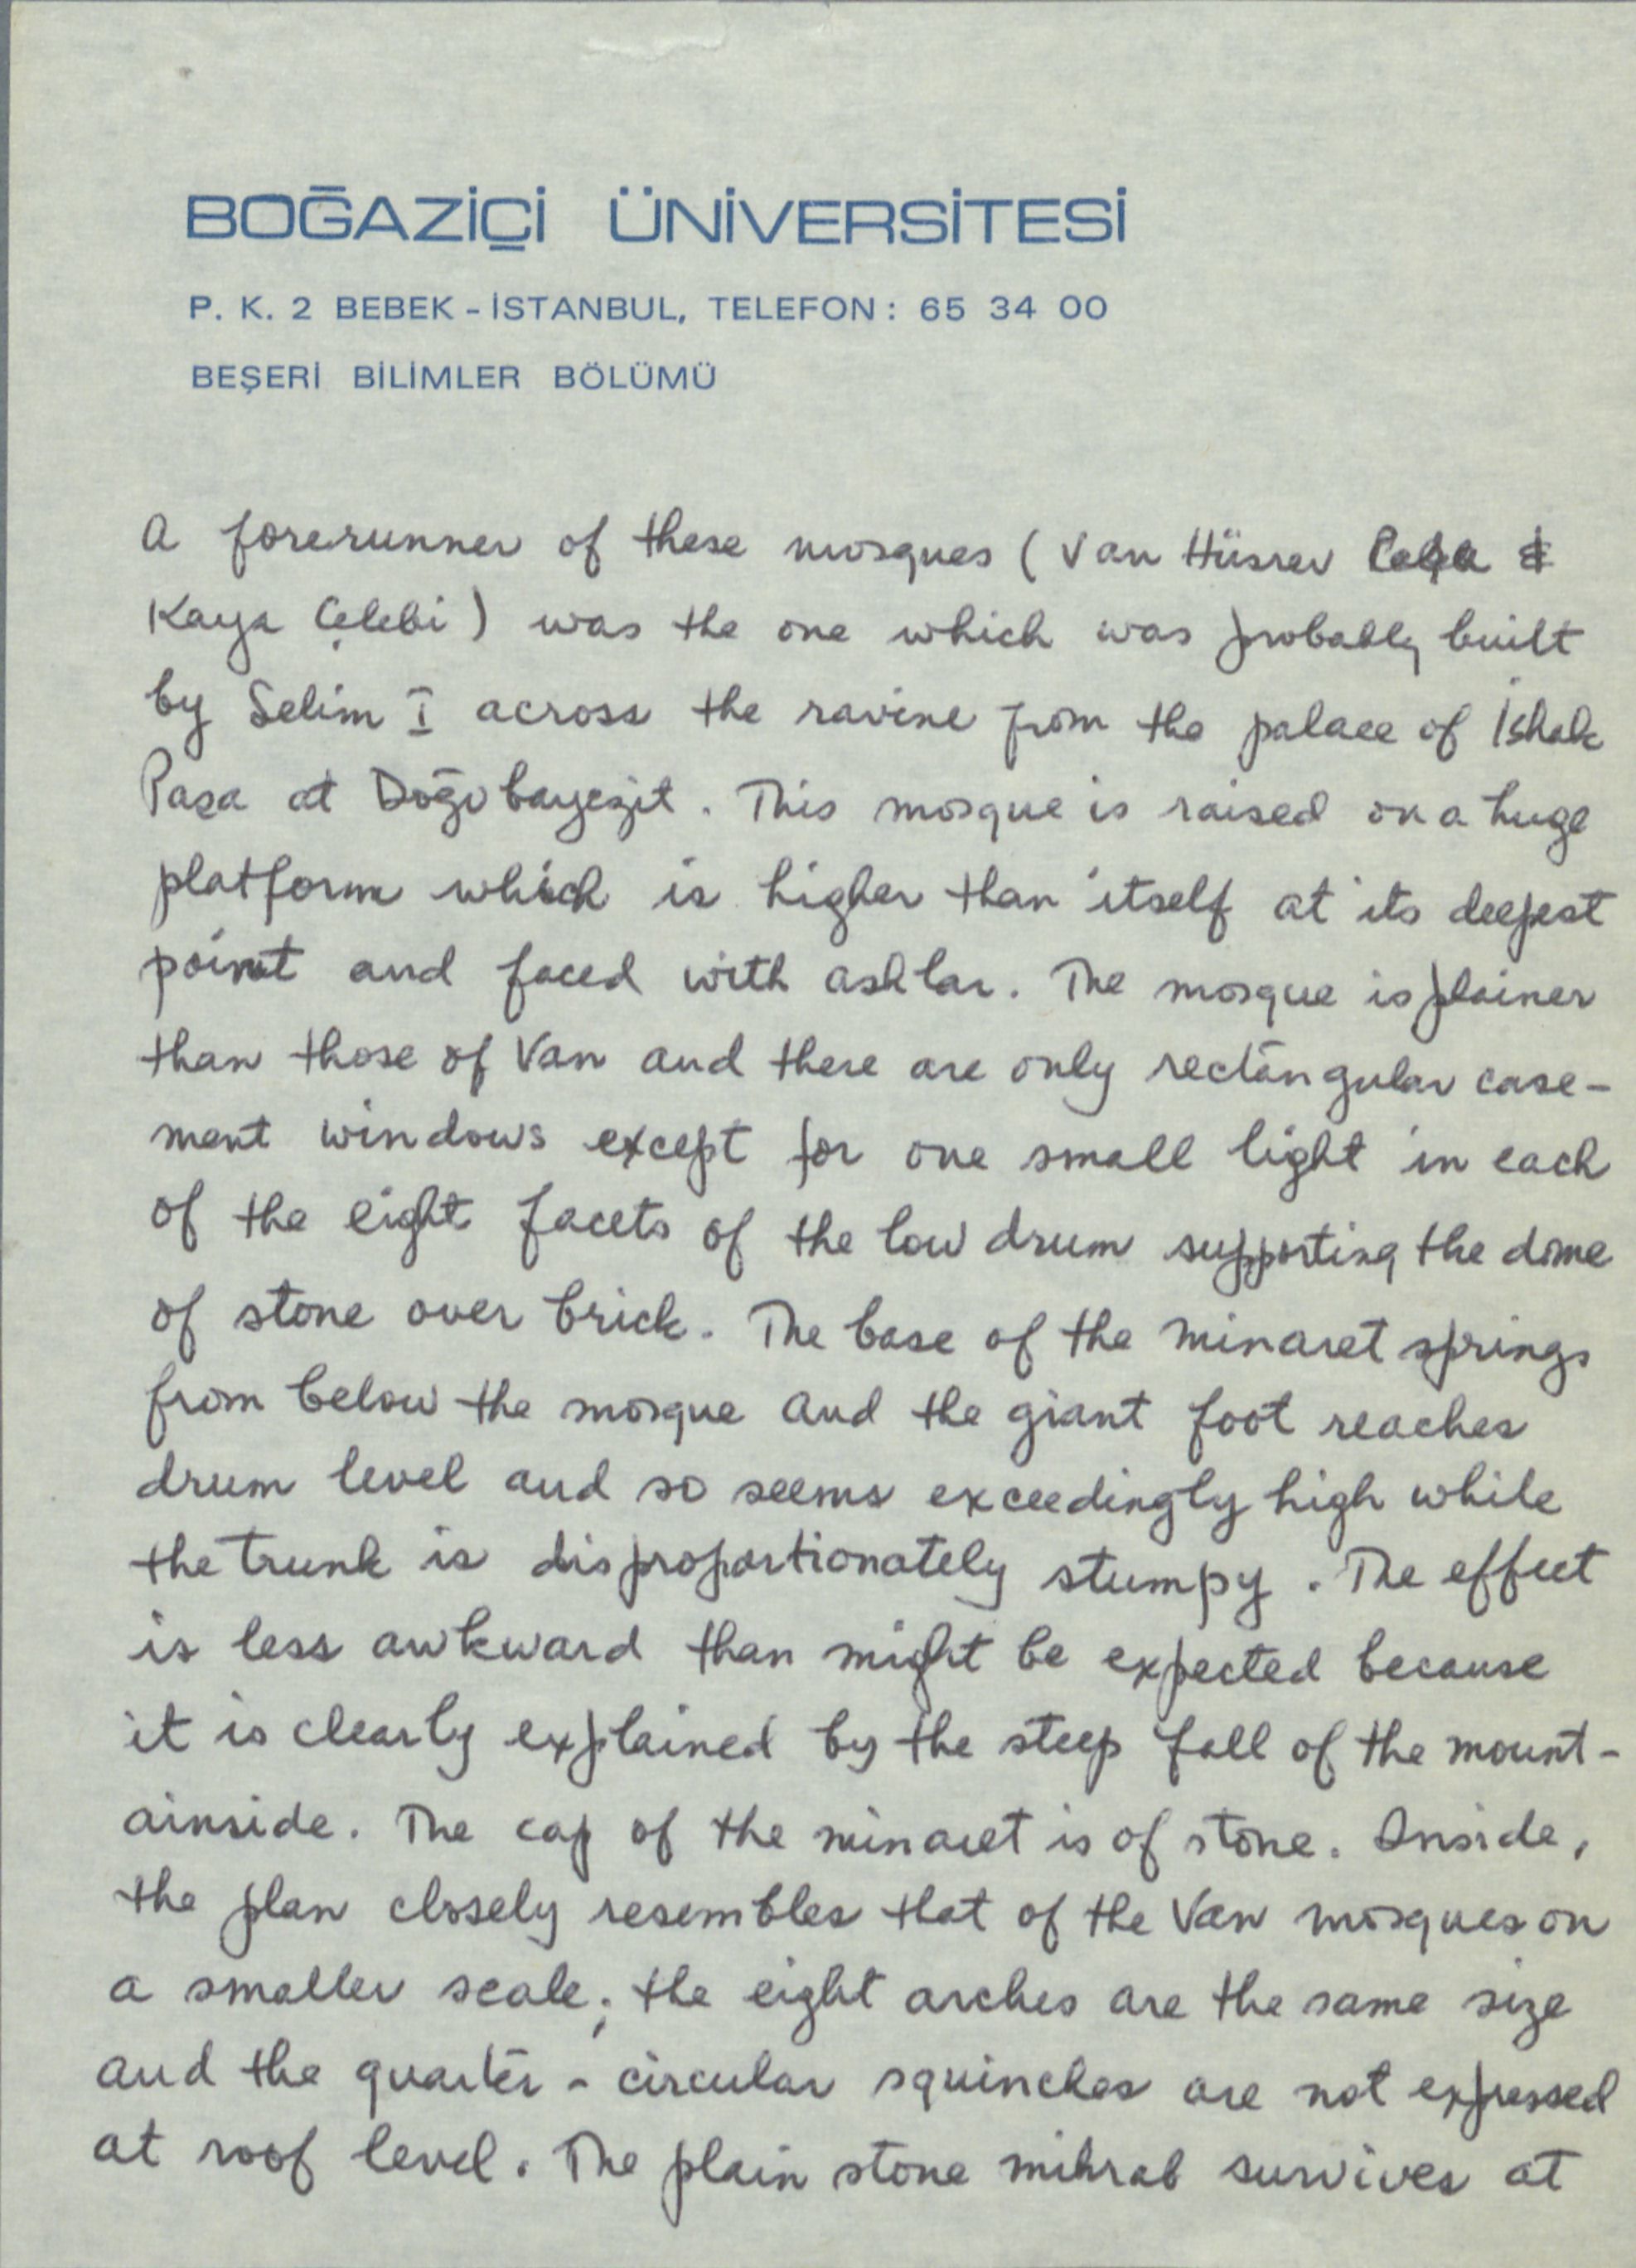 BOĞAZİÇİ ÜNİVERSİTESİ
P. K. 2 BEBEK - İSTANBUL, TELEFON : 65 34 00
BEŞERİ BİLİMLER BÖLÜMÜ
A forerunner of these mosques ( Van Hüsrev &
Kaya Çelebi ) was the one which was probably built
by Selim I across the ravine from the palace of İshak
Paşa at Doğubayezit. This mosque is raised on a huge
platform which is higher than itself at its deepest
point and faced with ashlar. The mosque is plainer
than those of Van and there are only rectangular case-
ment windows except for one small light in each
of the eight facets of the low drum supporting the dome
of stone over brick. The base of the minaret springs
from below the mosque and the giant foot reaches
drum level and so seems exceedingly high while
the trunk is disproportionately stumpy. The effect
is less awkward than might be expected because
it is clearly explained by the steep fall of the mount-
ainside. The cap of the minaret is of stone. Inside,
the plan closely resembles that of the Van mosques on
a smaller scale; the eight arches are the same size
and the quarter-circular squinches are not expressed
at roof level. The plain stone mihrab survives at